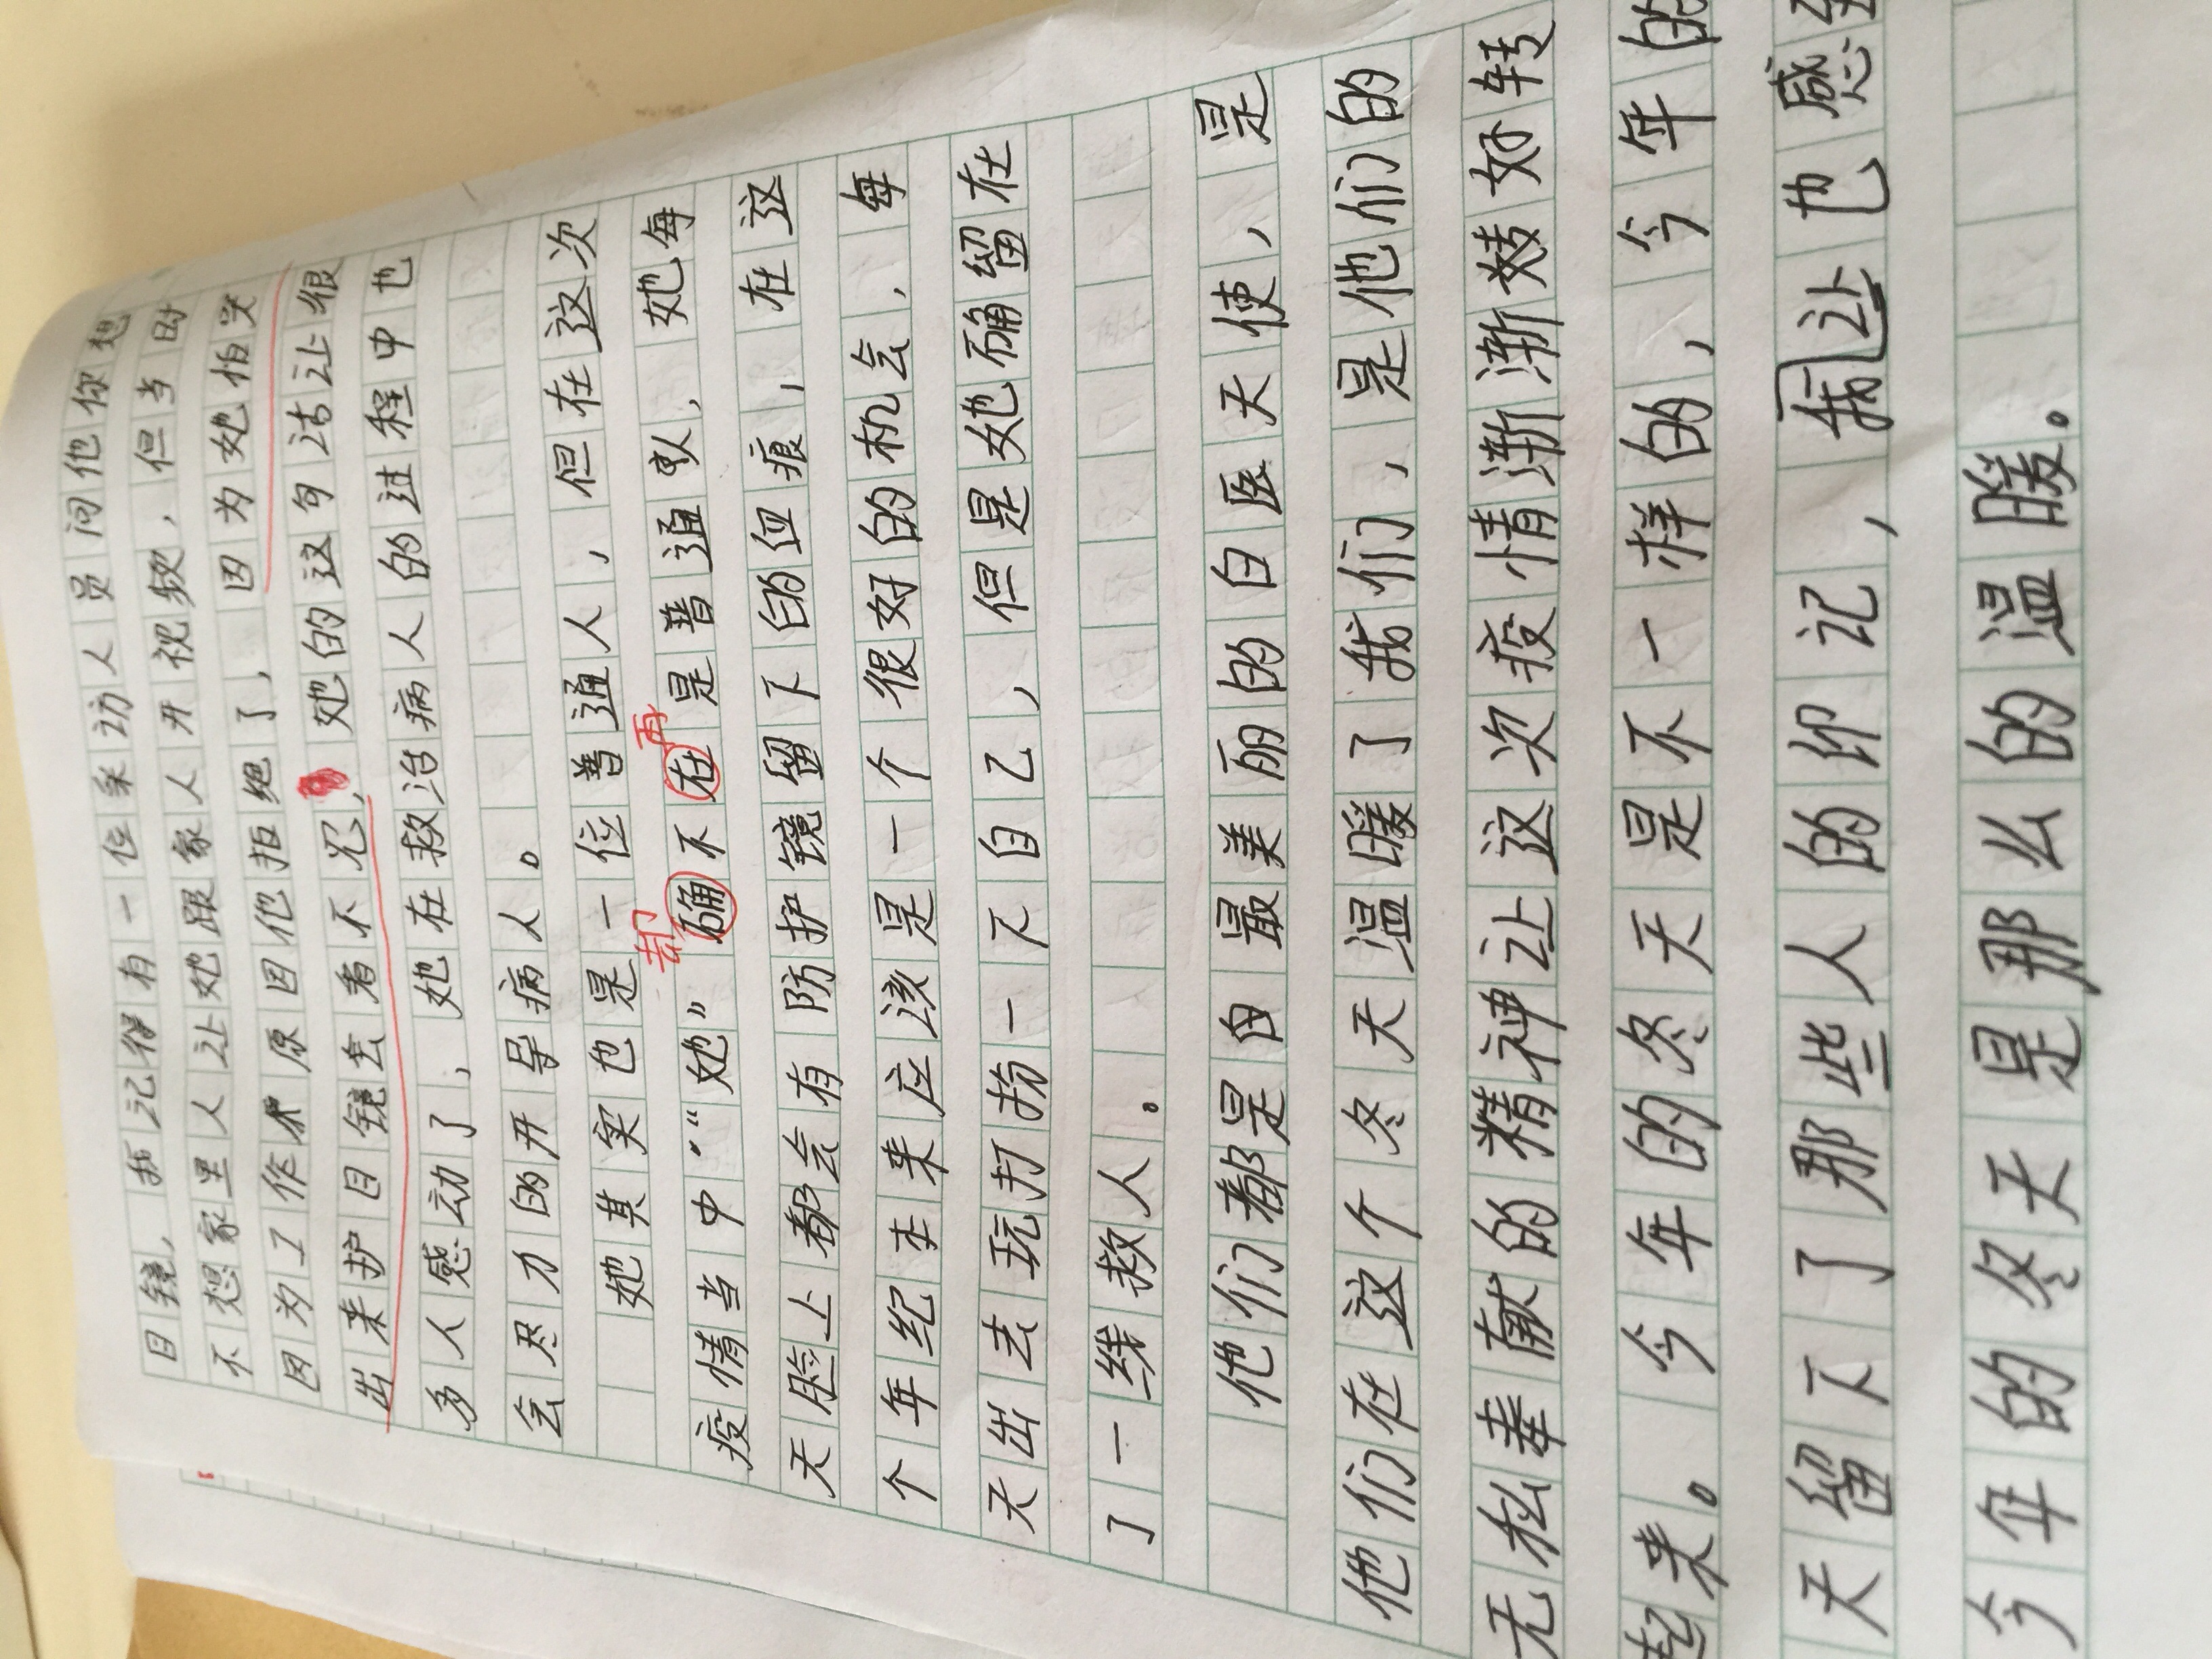 目镜,我记得有一位采访人员问他你想
不想家里人让她跟家人开视频,但当时
因为工作原因他拒绝了,因为她怕哭
出来护目镜会看不见,她的这句话让很
多人感动了,她在救治病人的过程中也
会尽力的开导病人。
她其实也是一位普通人,但在这次
疫情当中,“她”确不在是普通队,她每
却 再
天脸上都会有防护镜留下的血痕,在这
个年纪本来应该是一个很好的机会,每
天出去玩打扮一下自己,但是她确留在
了一线救人。
他们都是由最美丽的白医天使,是
他们在这个冬天温暖了我们,是他们的
无私奉献的精神让这次疫情渐渐好转
起来。今年的冬天是不一样的,今年的
天留下了那些人的印记,我让也感
今年的冬天是那么的温暖。